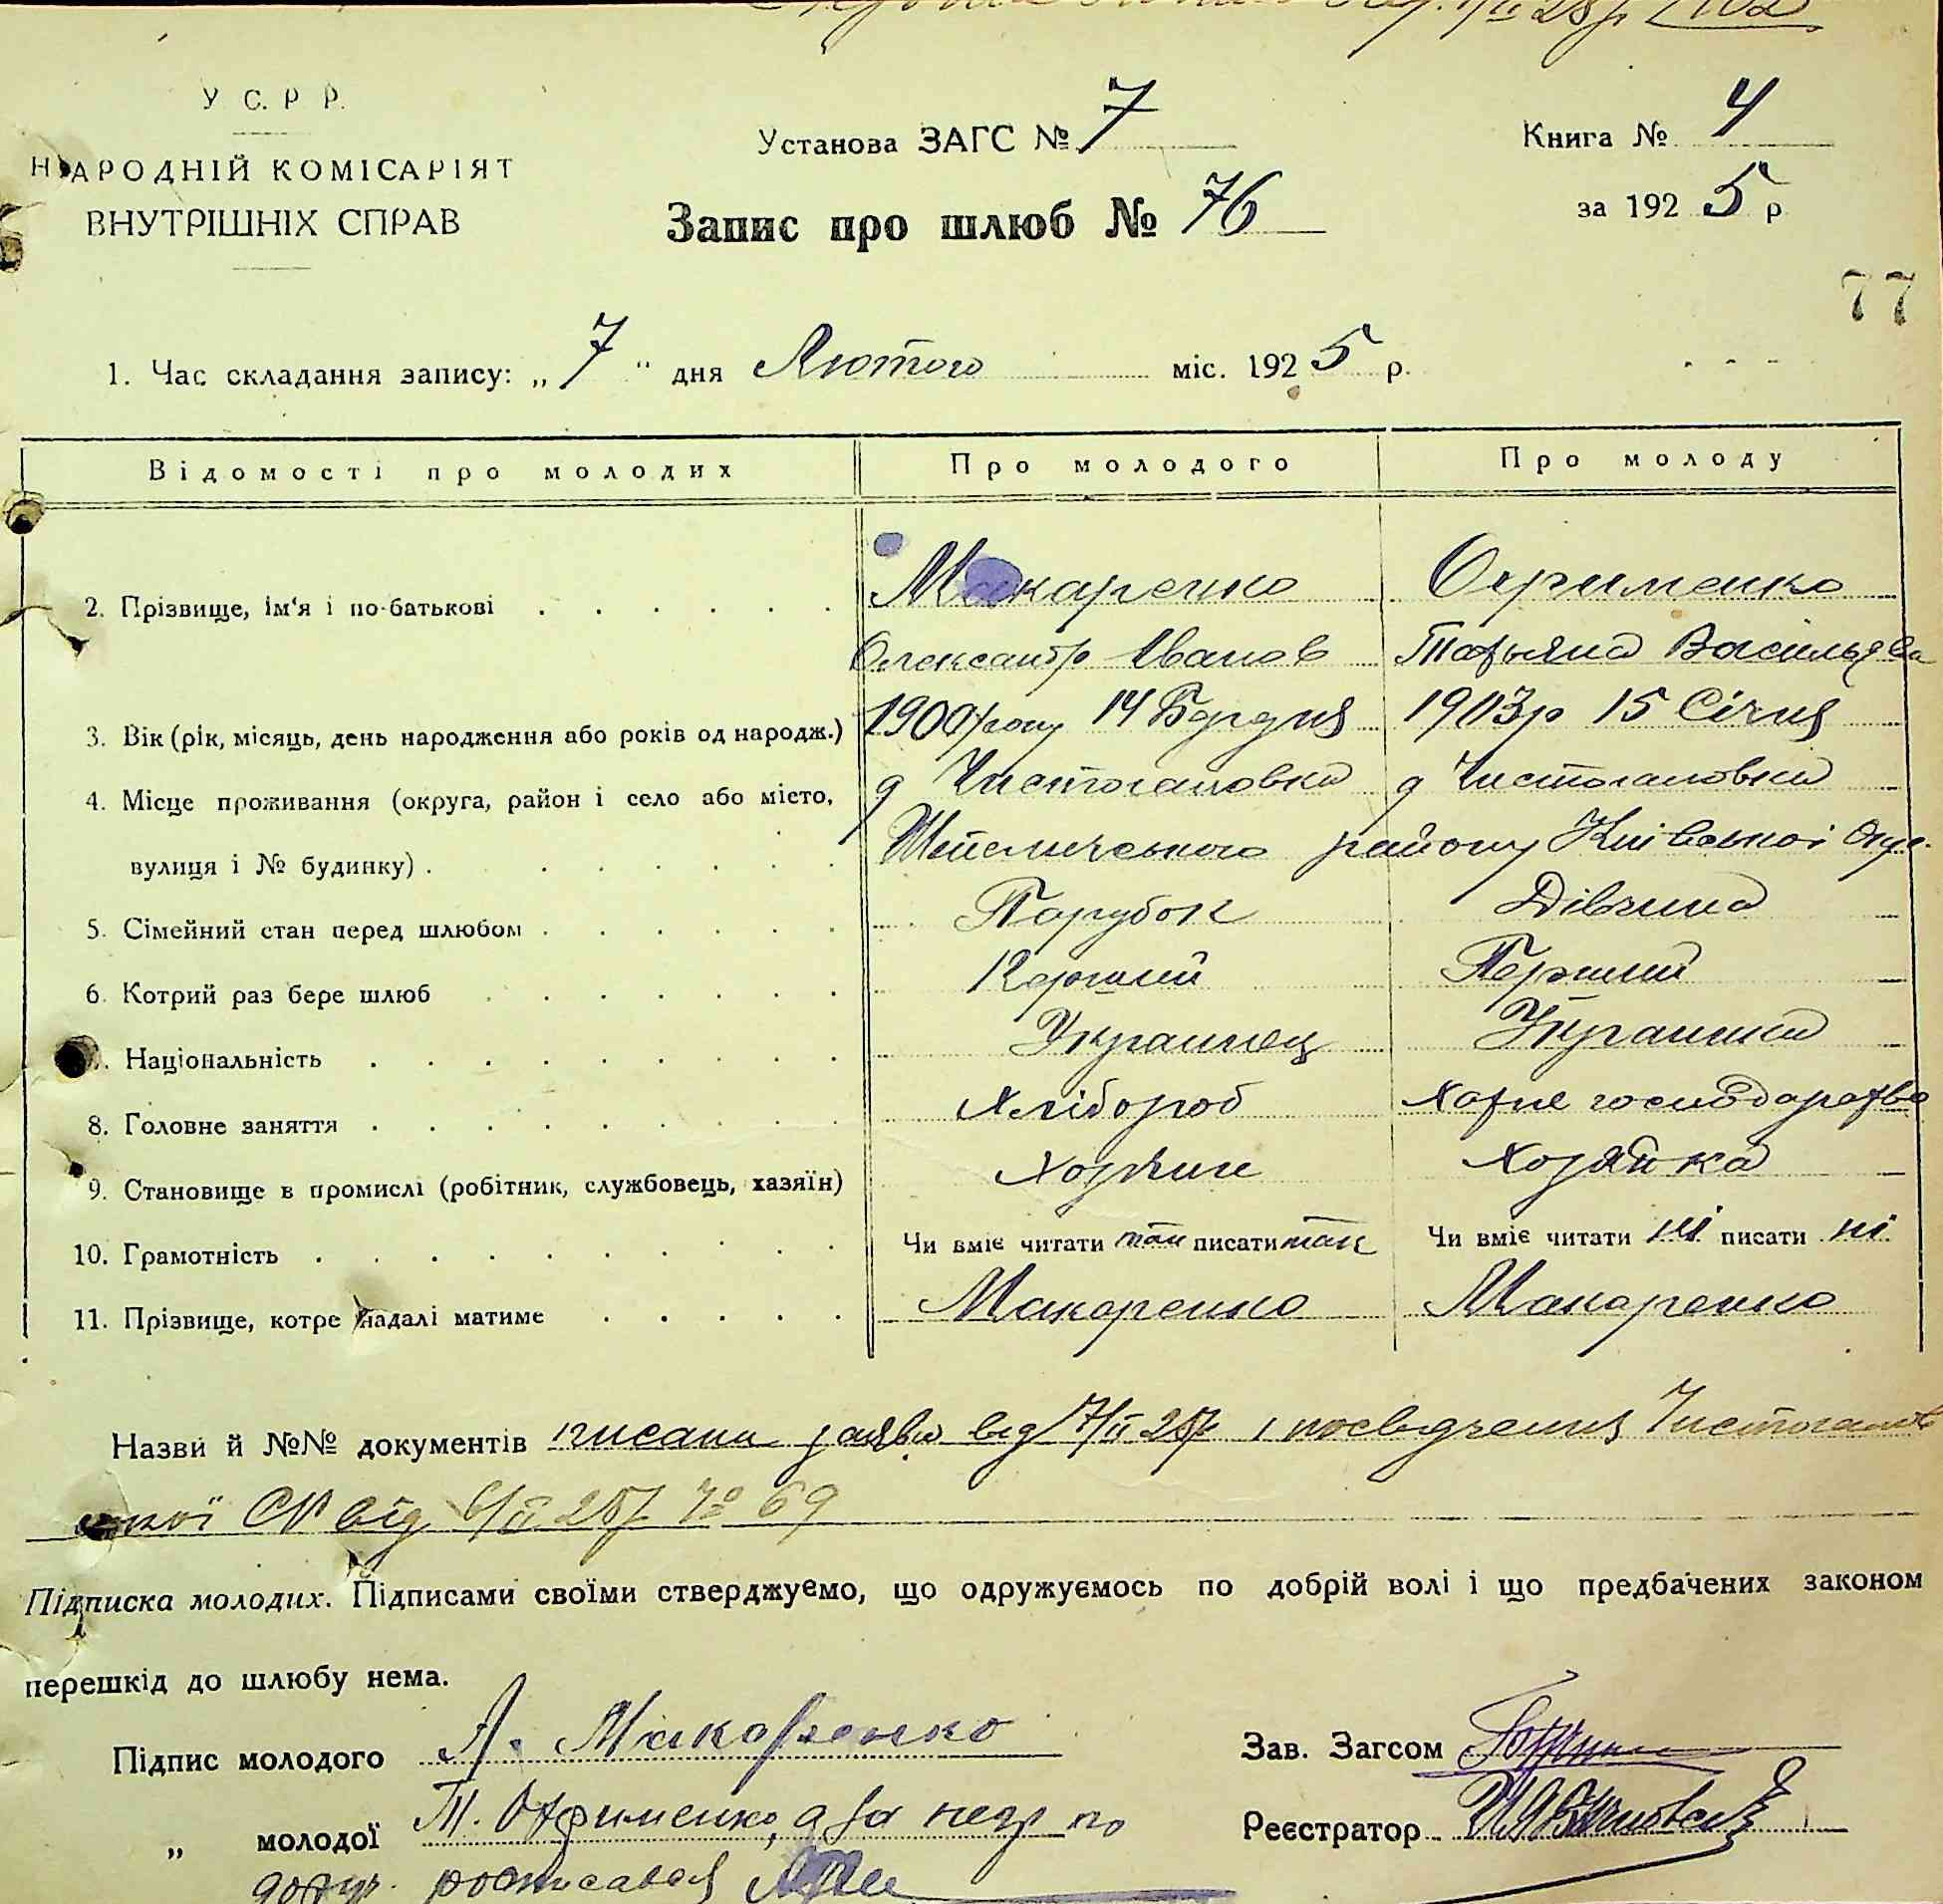 У С. Р Р.
НАРОДНІЙ КОМІСАРІЯТ
ВНУТРІШНІХ СПРАВ
Установа ЗАГС № 7
Книга № 4
Запис про шлюб № 76
за 1925 р
77
1. Час складання запису: „7“ дня Лютого міс. 1925 р.
Відомості про молодих Про молодого Про молоду
2. Прізвище, ім'я і по-батькові Макаренко Охрименко
Олександр Іванов Татьяна Васильєва
3. Вік (рік, місяць, день народження або років од народж.) 1900 року 14 Грудня 1903р 15 Січня
4. Місце проживання (округа, район і село або місто, д Чистогаловка д Чистогаловка
вулиця і № будинку) району Київської Окр.
5. Сімейний стан перед шлюбом Парубок Дівчина
6. Котрий раз бере шлюб Перший Перший
Національність Украинец Украинка
8. Головне заняття Хлібороб Хатне господарство
9. Становище в промислі (робітник, службовець, хазяїн) Хозяин Хозяйка
10. Грамотність Чи вміє читати так писати так Чи вміє читати ні писати ні
11. Прізвище, котре надалі матиме Макаренко Макаренко
Назви й №№ документів писана заява від 7/ІІ 25р і посвідчення Чистогалов
ської СР від 6/ІІ 25р № 69
Підписка молодих. Підписами своїми стверджуємо, що одружуємось по добрій волі і що предбачених законом
перешкід до шлюбу нема.
Підпис молодого А. Макаренко Зав. Загсом
„ молодої Т. Охрименко, а за негр по Реєстратор
доруч. росписався